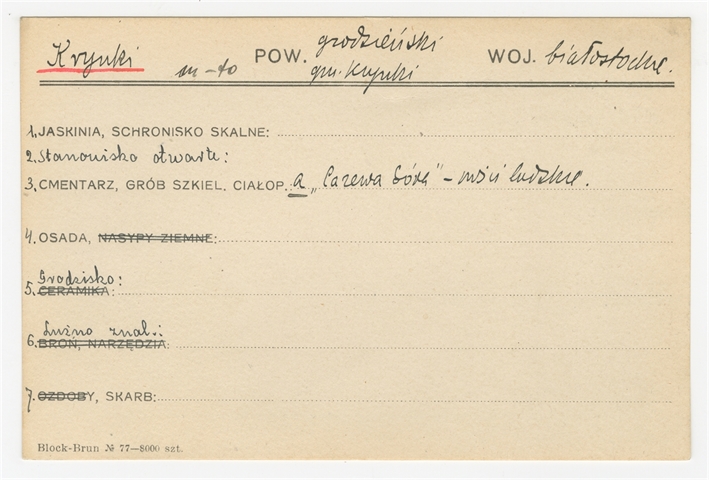 Krynki m-to POW. grodzieński WOJ. białostockie.
gm. Krynki
1. JASKINIA, SCHRONISKO SKALNE:
2. Stanowisko otwarte:
3. CMENTARZ, GRÓB SZKIEL. CIAŁOP.: a „Carewa Góra" – kości ludzkie.
4. OSADA, NASYPY ZIEMNE:
Grodzisko:
5. CERAMIKA:
Luźno znal.:
6. BROŃ, NARZĘDZIA:
7. OZDOBY, SKARB:
Block-Brun № 77—8000 szt.